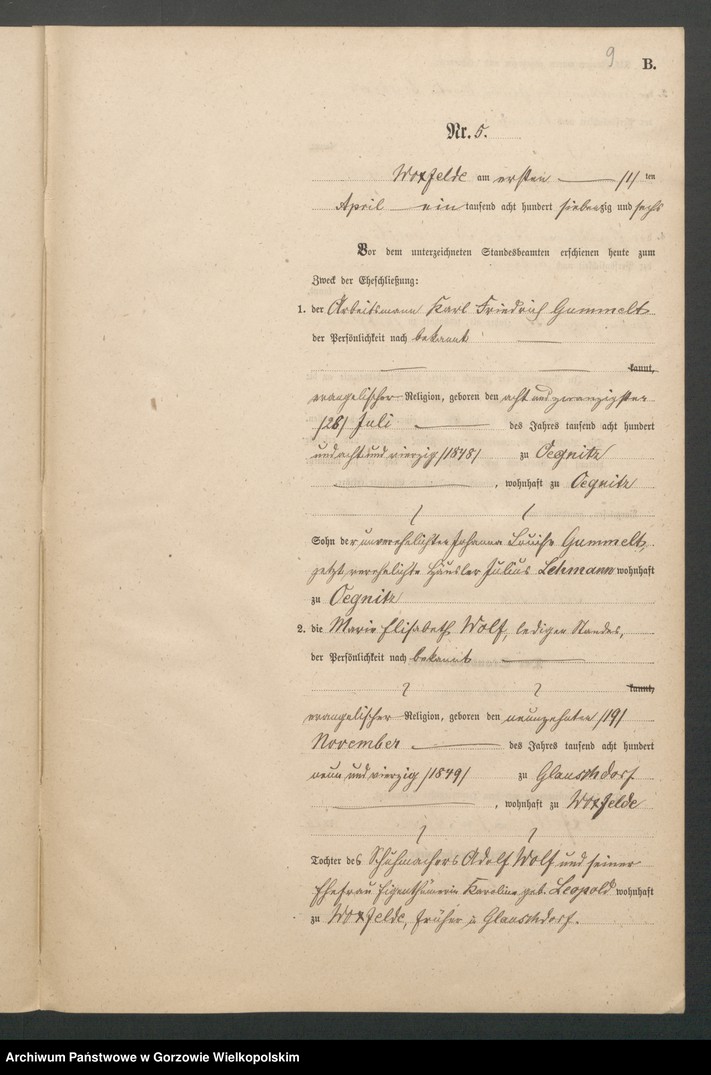 9
B.
Nr. 5.
Woxfelde am ersten /1/ ten
April ein tausend acht hundert siebenzig und sechs
Vor dem unterzeichneten Standesbeamten erschienen heute zum
Zweck der Eheschließung:
1. der Arbeitsmann Karl Friedrich Gummelt
der Persönlichkeit nach bekannt
kannt,
evangelischer Religion, geboren den acht und zwanzigsten
/28/ Juli des Jahres tausend acht hundert
und acht und vierzig /1848/ zu Oegnitz
, wohnhaft zu Oegnitz
Sohn der unverehelichten Johanna Louise Gummelt,
jetzt verehelichte Häusler Julius Lehmann wohnhaft
zu Oegnitz
2. die Marie Elisabeth Wolf, ledigen Standes,
der Persönlichkeit nach bekannt
kannt,
evangelischer Religion, geboren den neunzehnten /19/
November des Jahres tausend acht hundert
neun und vierzig /1849/ zu Glauschdorf
, wohnhaft zu Woxfelde
Tochter des Schuhmachers Adolf Wolf und seiner
Ehefrau Eigenthümerin Karoline geb. Leopold wohnhaft
zu Woxfelde, früher in Glauschdorf.
Archiwum Państwowe w Gorzowie Wielkopolskim